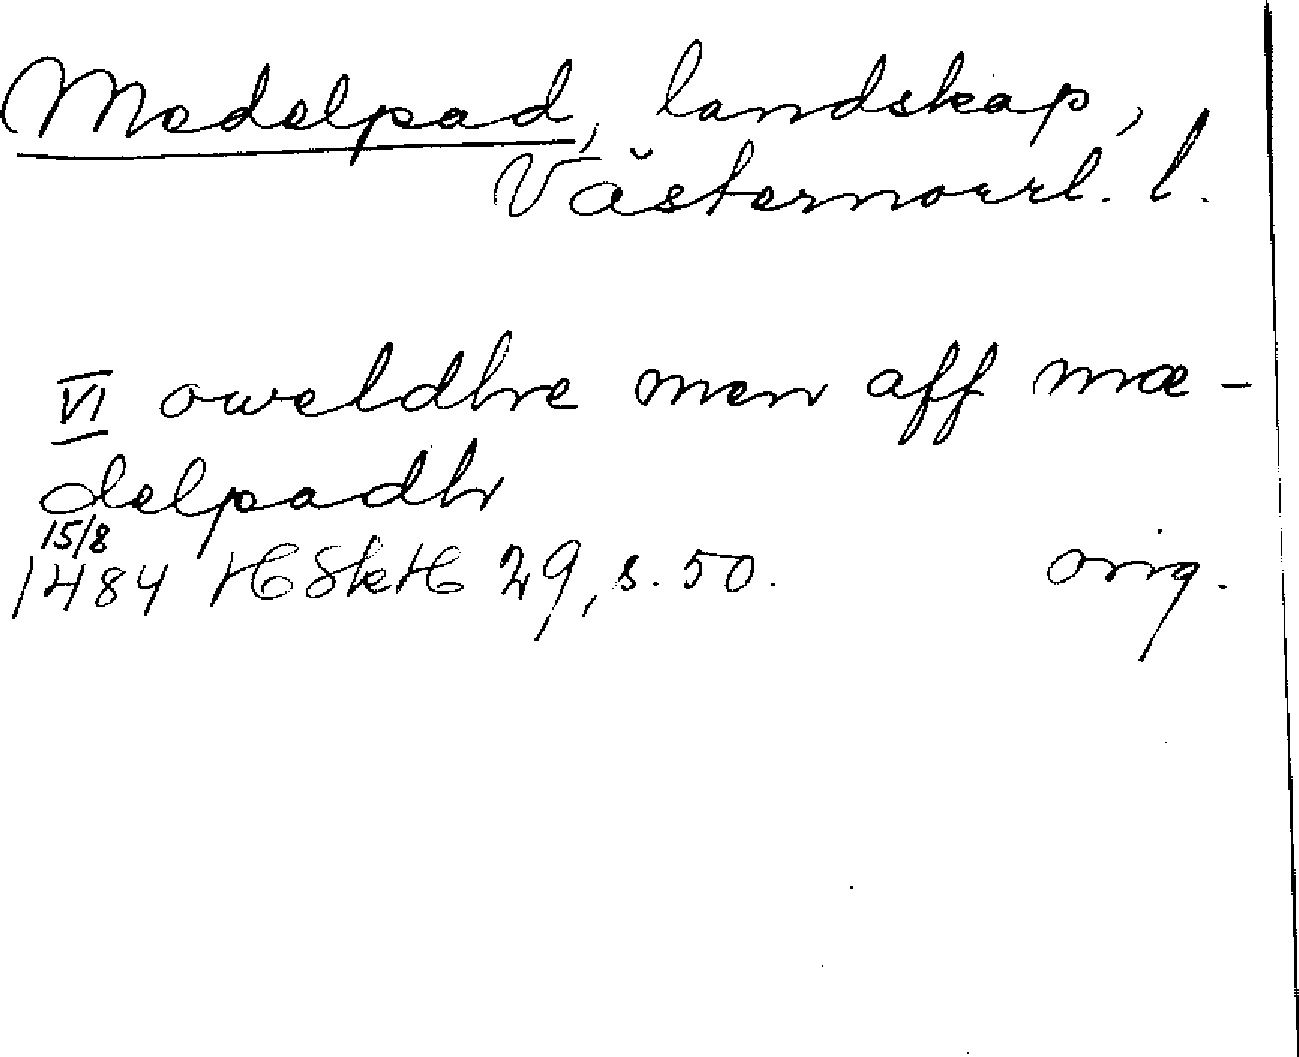 Medelpad, landskap,
Västernorrl. l.
VI oweldhre men aff mæ-
delpadh
15/8
1484 HSkH 29, s. 50. orig.